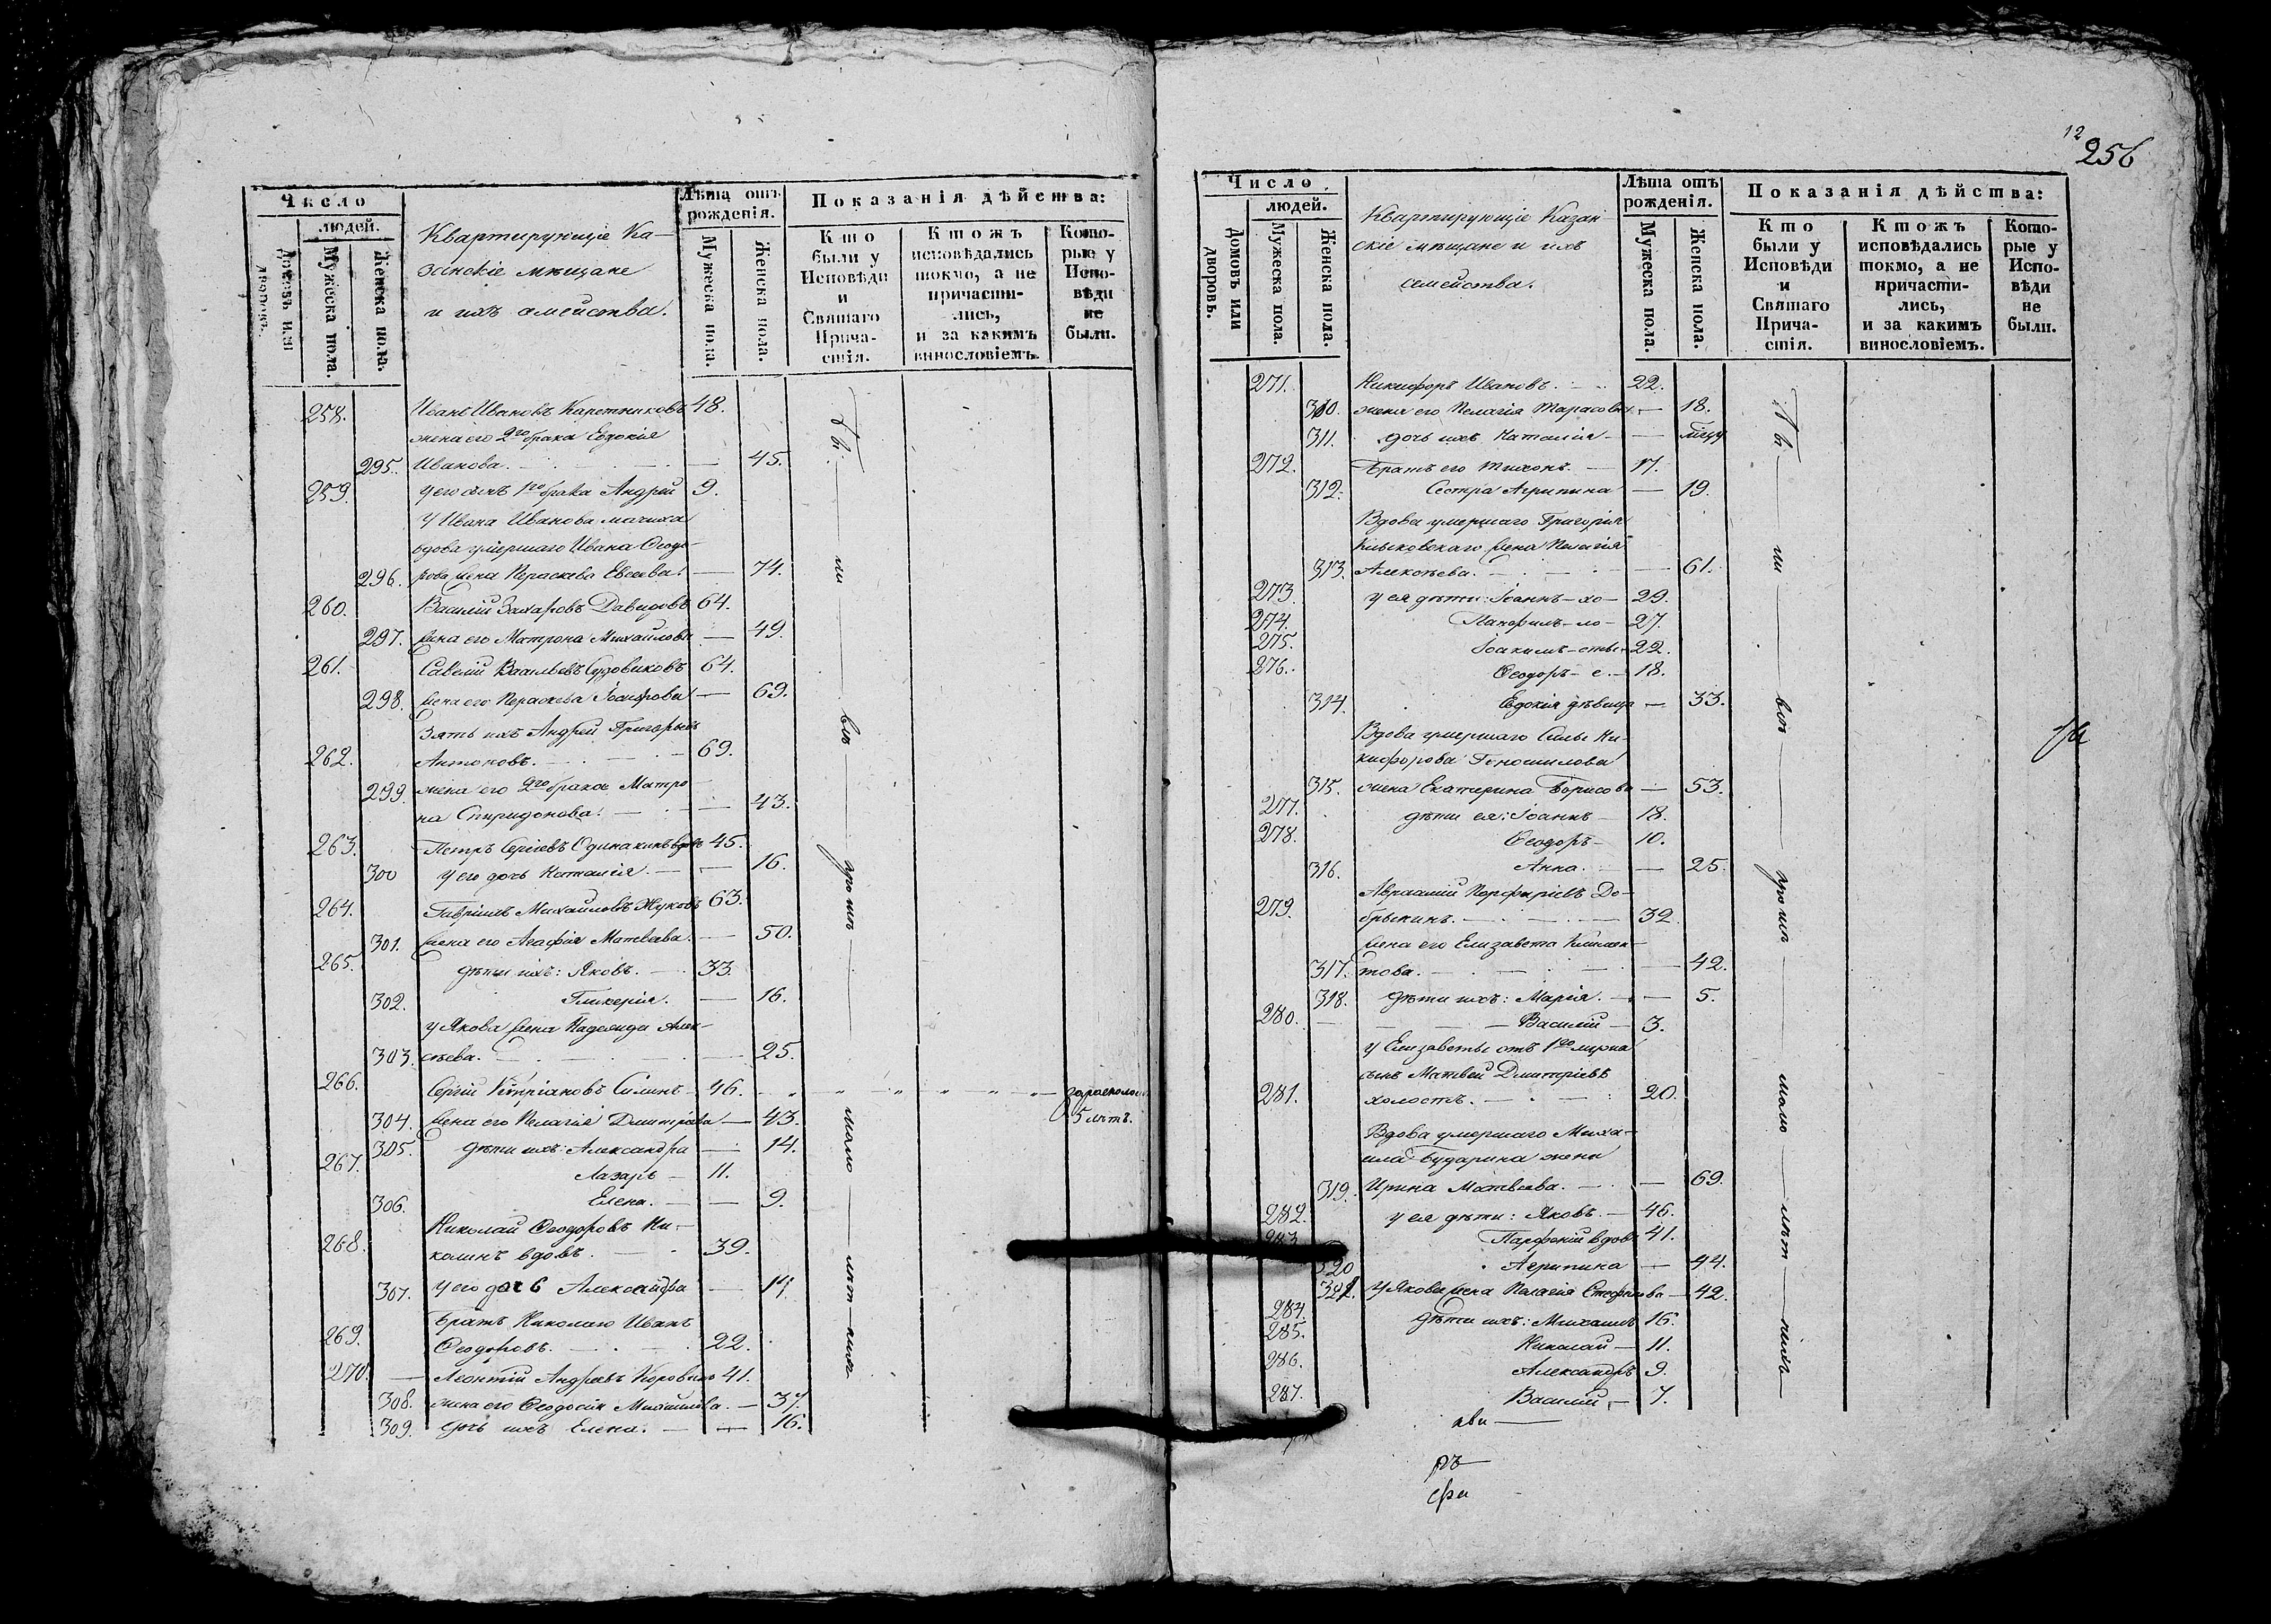 Число
людей.
Домовъ или дворовъ.
Мужеска пола.
Женска пола.
Квартирующіе Ка-
занскіе мѣщане
и ихъ семейства.
Лѣта отъ рожденія.
Мужеска пола.
Женска пола.
Показанія дѣйства:
Кто были у Исповѣди и Святаго Прича-стія.
Ктожъ исповѣдались токмо, а не причасти-лись, и за какимъ винословіемъ.
Кото-рые у Испо-вѣди не были.
258. Иванъ Ивановъ Каретниковъ 48.
жена его 2го брака Евдокія
295. Иванова. — 45.
259. у его сынъ 1го брака Андрей 9.
у Ивана Иванова мачиха
вдова умершаго Ивана Ѳеодо-
296. рова жена Параскева Евсеева. — 74.
260. Василій Захаровъ Давыдовъ 64.
297. жена его Матрона Михайлова — 49.
261. Савелій Васильевъ Судовиковъ 64.
298. жена его Параскева Іосифова — 69.
Зять ихъ Андрей Григорьевъ
262. Антоновъ. — 69.
299. жена его 2го брака Матро-
на Спиридонова. — 43.
263. Петръ Сергіевъ Одинакинъ вдовъ 45.
300 у его дочь Наталія. — 16.
264. Гавріилъ Михайловъ Жуковъ 63.
301. жена его Агафія Матвѣева. — 50.
265. дѣти ихъ: Яковъ. — 33.
302. Гликерія. — 16.
у Якова жена Надежда Алек-
303. сѣева. — 25.
266. Сергій Кипріановъ Силинъ — 46. — " — " — " — " —
5 лѣтъ.
304. жена его Пелагія Дмитріева — 43.
305. дѣти ихъ: Александра — 14.
267. Лазарь — 11.
306. Елена. — 9.
Николай Ѳеодоровъ Ни-
268. колинъ вдовъ. — 39.
307. у его дочь Александра — 14.
Братъ Николаю Иванъ
269. Ѳеодоровъ. — 22.
270. — Леонтій Андреевъ Коровинъ 41.
308. жена его Ѳеодосія Михайлова. — 37.
309. дочь ихъ Елена. — 16.
12
256
Число
людей.
Домовъ или дворовъ.
Мужеска пола.
Женска пола.
Квартирующіе Казан
скіе мѣщане и ихъ
семейства.
Лѣта отъ рожденія.
Мужеска пола.
Женска пола.
Показанія дѣйства:
Кто были у Исповѣди и Святаго Прича-стія.
Ктожъ исповѣдались токмо, а не причасти-лись, и за какимъ винословіемъ.
Кото-рые у Испо-вѣди не были.
271. Никифоръ Ивановъ. — 22.
310. жена его Пелагія Тарасова. — 18.
311. дочь ихъ Наталія —
272. Братъ его Тихонъ. — 17.
312. Сестра Агрипина — 19.
Вдова умершаго Григорія
жена Пелагія
313. Алексѣева. — 61.
273. у ея дѣти: Іоаннъ — хо — 29.
274. Панфилъ — ло — 27.
275. Іоакимъ — сты — 22.
276. Ѳеодоръ — е. — 18.
314. Евдокія дѣвица — 33.
Вдова умершаго Силы Ни-
кифорова
315. жена Екатерина Борисова — 53.
277. дѣти ея: Іоаннъ — 18.
278. Ѳеодоръ — 10.
316. Анна. — 25.
Авраамій Порфиріевъ До-
279. брынинъ. — 32.
жена его Елизавета Климен-
317. това. — 42.
318. дѣти ихъ: Марія. — 5.
280. — Василій — 3.
у Елизаветы отъ 1го мужа
сынъ Матвей Дмитріевъ
281. холостъ. — 20.
Вдова умершаго Миха-
ила Бударина жена
319. Ирина Матвѣева. — 69.
282. у ея дѣти: Яковъ. — 46.
283 Парфеній вдовъ 41.
320 Агрипина — 44.
321. у Якова жена Пелагія Стефанова — 42.
284. дѣти ихъ: Михаилъ 16.
285. Николай — 11.
286. Александръ 9.
287. Василій. — 7.